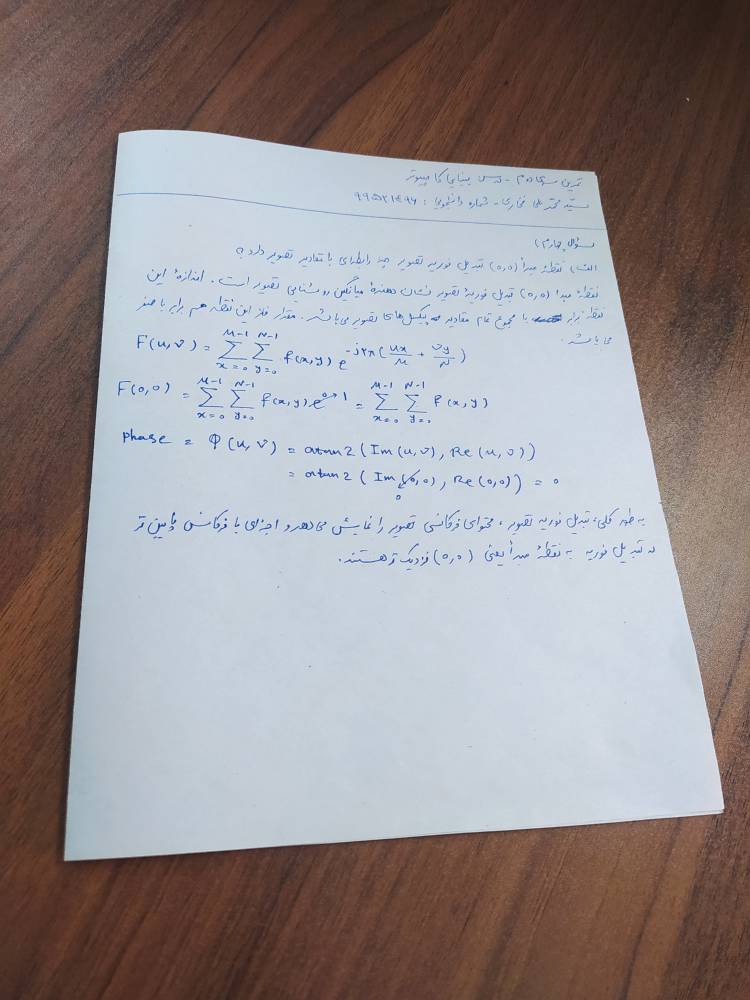 تمرین سری دوم - درس بینایی کامپیوتر
سید محمد علی فخاری - شماره دانشجویی : ۹۹۵۲۱۴۹۶
سؤال چهارم)
الف) نقطهٔ مبدأ (0,0) تبدیل فوریه تصویر چه رابطه‌ای با مقادیر تصویر دارد؟
نقطهٔ مبدا (0,0) تبدیل فوریهٔ تصویر نشان دهندهٔ میانگین روشنایی تصویر است. اندازهٔ این
نقطه برابر با مجموع تمام مقادیر پیکسل‌های تصویر می‌باشد. مقدار فاز این نقطه هم برابر با صفر
می‌باشد.
F(u,v) = Σ_{x=0}^{M-1} Σ_{y=0}^{N-1} f(x,y) e^{-j2π(ux/M + vy/N)}
F(0,0) = Σ_{x=0}^{M-1} Σ_{y=0}^{N-1} f(x,y) e^{0}→1 = Σ_{x=0}^{M-1} Σ_{y=0}^{N-1} f(x,y)
phase = φ(u,v) = atan2(Im(u,v), Re(u,v))
= atan2(Im(0,0), Re(0,0)) = 0
0
به طور کلی، تبدیل فوریه تصویر، محتوای فرکانسی تصویر را نمایش می‌دهد و اجزای با فرکانس پایین تر
در تبدیل فوریه به نقطهٔ مبدأ یعنی (0,0) نزدیک تر هستند.